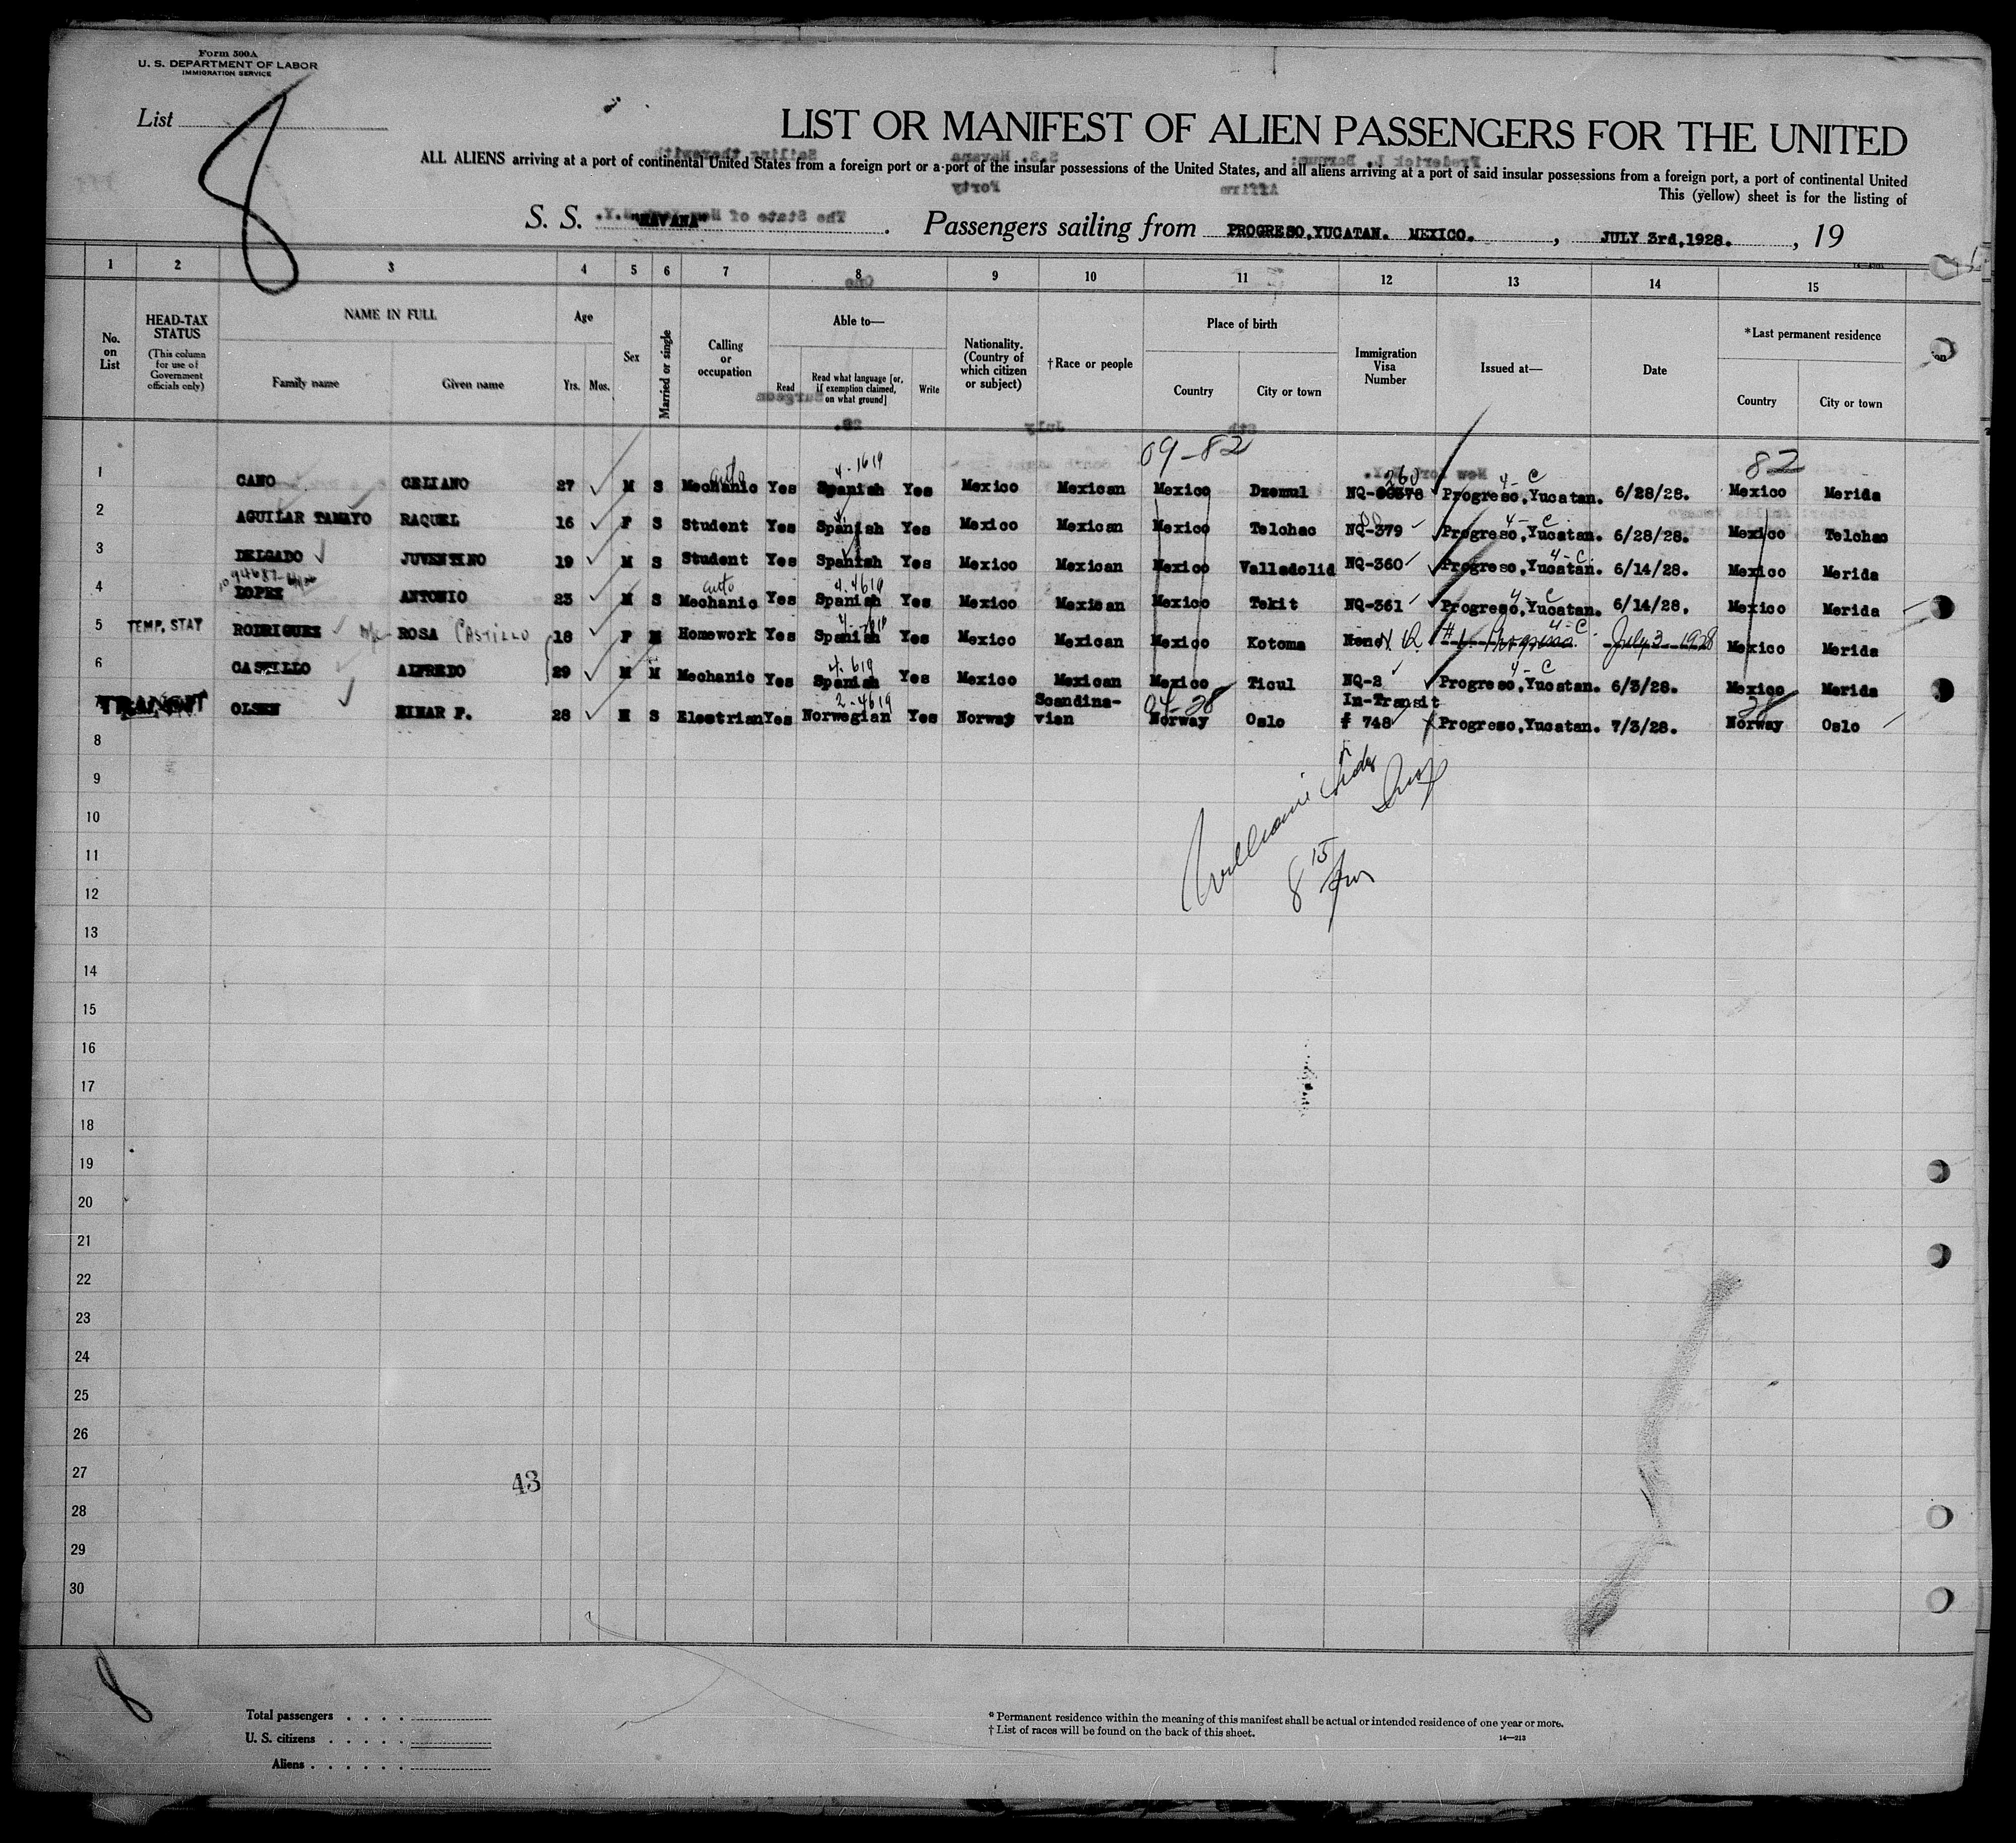 Form 500A
U. S. DEPARTMENT OF LABOR
IMMIGRATION SERVICE
List 8
LIST OR MANIFEST OF ALIEN PASSENGERS FOR THE UNITED
ALL ALIENS arriving at a port of continental United States from a foreign port or a port of the insular possessions of the United States, and all aliens arriving at a port of said insular possessions from a foreign port, a port of continental United
This (yellow) sheet is for the listing of
S. S. "HAVANA". Passengers sailing from PROGRESO,YUCATAN. MEXICO. , JULY 3rd,1928. , 19
1 2 3 4 5 6 7 8 9 10 11 12 13 14 15
No. on List
HEAD-TAX STATUS
(This column for use of Government officials only)
NAME IN FULL
Family name Given name
Age
Yrs. Mos.
Sex
Married or single
Calling or occupation
Able to—
Read Read what language [or, if exemption claimed, on what ground] Write
Nationality. (Country of which citizen or subject)
†Race or people
Place of birth
Country City or town
Immigration Visa Number
Issued at—
Date
*Last permanent residence
Country City or town
09-82 82
1 CANO CELIANO 27 M S auto Mechanic Yes Spanish Yes Mexico Mexican Mexico Dzemul Progreso,Yucatan. 6/28/28. Mexico Merida
2 AGUILAR TAMAYO RAQUEL 16 F S Student Yes Spanish Yes Mexico Mexican Mexico Telchac NQ-379 Progreso,Yucatan. 6/28/28. Mexico Telchac
3 DELGADO JUVENTINO 19 M S Student Yes Spanish Yes Mexico Mexican Mexico Valladolid NQ-360 Progreso,Yucatan. 6/14/28. Mexico Merida
4 LOPEZ ANTONIO 23 M S auto Mechanic Yes Spanish Yes Mexico Mexican Mexico Tekit NQ-361 Progreso,Yucatan. 6/14/28. Mexico Merida
5 TEMP. STAY RODRIGUEZ ROSA CASTILLO 18 F M Homework Yes Spanish Yes Mexico Mexican Mexico Kotoma None Progreso July 3-1928 Mexico Merida
6 CASTILLO ALFREDO 29 M M Mechanic Yes Spanish Yes Mexico Mexican Mexico Ticul NQ-2 Progreso,Yucatan. 6/3/28. Mexico Merida
TRANSIT OLSEN EINAR F. 28 M S Electrian Yes Norwegian Yes Norway Scandina-vian Norway Oslo In-Transit # 748 Progreso,Yucatan. 7/3/28. Norway Oslo
8
9
10
11
12
13
14
15
16
17
18
19
20
21
22
23
24
25
26
27
28
29
30
43
8
Total passengers . . . .
U. S. citizens . . . . .
Aliens . . . . . .
* Permanent residence within the meaning of this manifest shall be actual or intended residence of one year or more.
† List of races will be found on the back of this sheet.
14—213